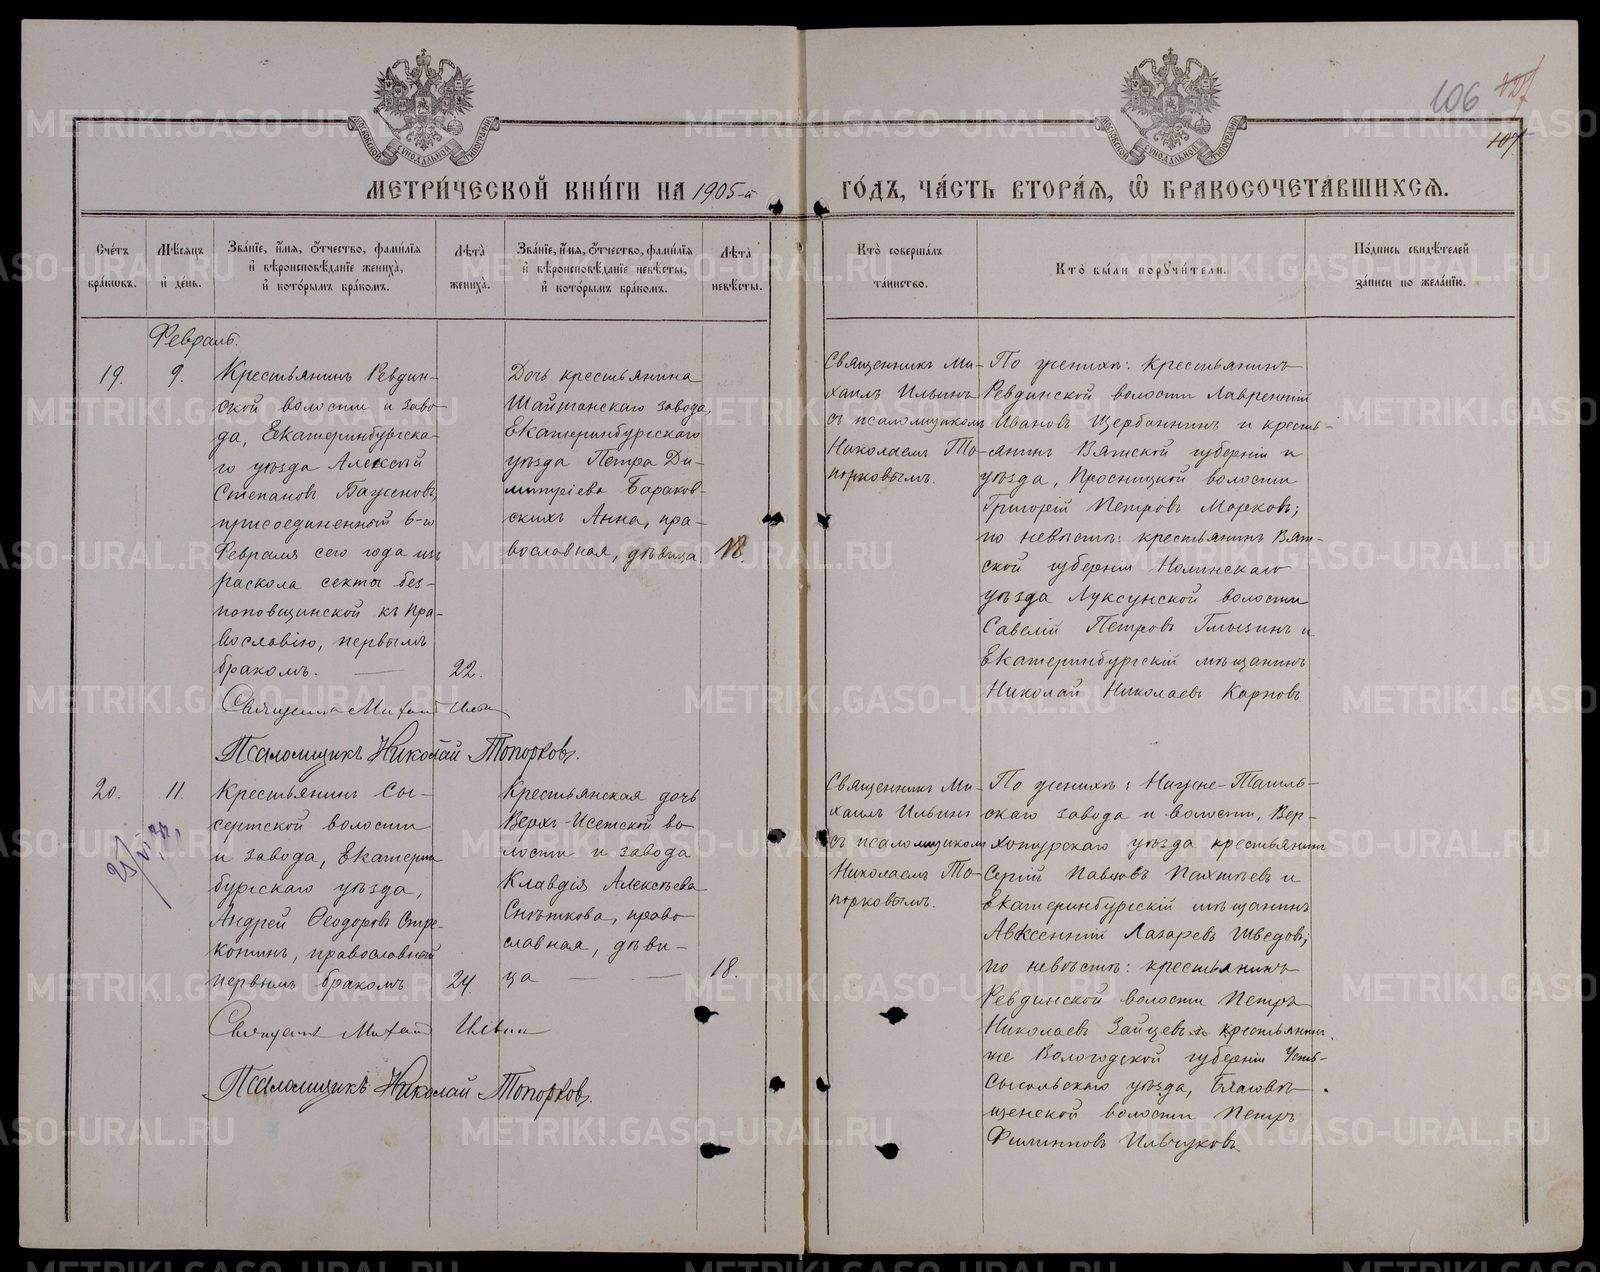 106
107
МЕТРИ́ЧЕСКОЙ КНИ́ГИ НА 1905-й
ГО́ДЪ, ЧА́СТЬ ВТОРА́Я, Ѡ БРАКОСОЧЕТА́ВШИХСЯ.
Сче́тъ бра́кѡвъ.
Мѣ́сяцъ и де́нь.
Зва́нїе, и́мя, ѻ́тчество, фами́лїя
и вѣроисповѣ́данїе жениха̀,
и кото́рымъ бра́комъ.
Лѣта̀ жениха̀.
Зва́нїе, и́мя, ѻ́тчество, фами́лїя
и вѣроисповѣ́данїе невѣ́сты,
и кото́рымъ бра́комъ.
Лѣта̀ невѣ́сты.
Кто̀ соверша́лъ
та́инство.
Кто̀ бы́ли порꙋчи́тели.
По́дпись свидѣ́телей
за́писи по жела́нїю.
Февраль.
19.
9.
Крестьянинъ Ревдин-
ской волости и заво-
да, Екатеринбургска-
го уѣзда Алексѣй
Степановъ Баженовъ,
присоединенный 6-го
Февраля сего года изъ
раскола секты без-
поповщинской къ Пра-
вославію, первымъ
бракомъ.
22.
Священникъ Михаилъ Ильинъ
Псаломщикъ Николай Топорковъ.
Дочь крестьянина
Шайтанскаго завода,
Екатеринбургскаго
уѣзда Петра Ди-
митріева Бараков-
скихъ Анна, пра-
вославная, дѣвица
18.
Священникъ Ми-
хаилъ Ильинъ
съ псаломщикомъ
Николаемъ То-
порковымъ.
По женихѣ: Крестьянинъ
Ревдинской волости Лаврентій
Ивановъ Щербаннинъ и кресть-
янинъ Вятской губерніи и
уѣзда, Просницкой волости
Григорій Петровъ Морковъ;
по невѣстѣ: крестьянинъ Вят-
ской губерніи Нолинскаго
уѣзда Луксунской волости
Савелій Петровъ Глызинъ и
Екатеринбургскій мѣщанинъ
Николай Николаевъ Карповъ.
20.
11.
Крестьянинъ Сы-
сертской волости
и завода, Екатерин
бургскаго уѣзда,
Андрей Ѳеодоровъ Стре-
котинъ, православный
первымъ бракомъ
24.
Священникъ Михаилъ Ильинъ
Псаломщикъ Николай Топорковъ.
Крестьянская дочь
Верхъ-Исетской во
лости и завода
Клавдія Алексѣева
Снѣткова, право
славная, дѣви-
ца
18.
Священникъ Ми-
хаилъ Ильинъ
съ псаломщикомъ
Николаемъ То-
порковымъ.
По женихѣ: Нижне-Тагиль-
скаго завода и волости, Вер-
хотурскаго уѣзда крестьянинъ
Сергій Павловъ Пахтѣевъ и
Екатеринбургскій мѣщанинъ
Авксентій Лазаревъ Шведовъ;
по невѣстѣ: крестьянинъ
Ревдинской волости Петръ
Николаевъ Зайцевъ и крестьянинъ
же Вологодской губерніи Усть-
Сысольскаго уѣзда, Благовѣ-
щенской волости Петръ
Филипповъ Ильчуковъ.
METRIKI.GASO-URAL.RU